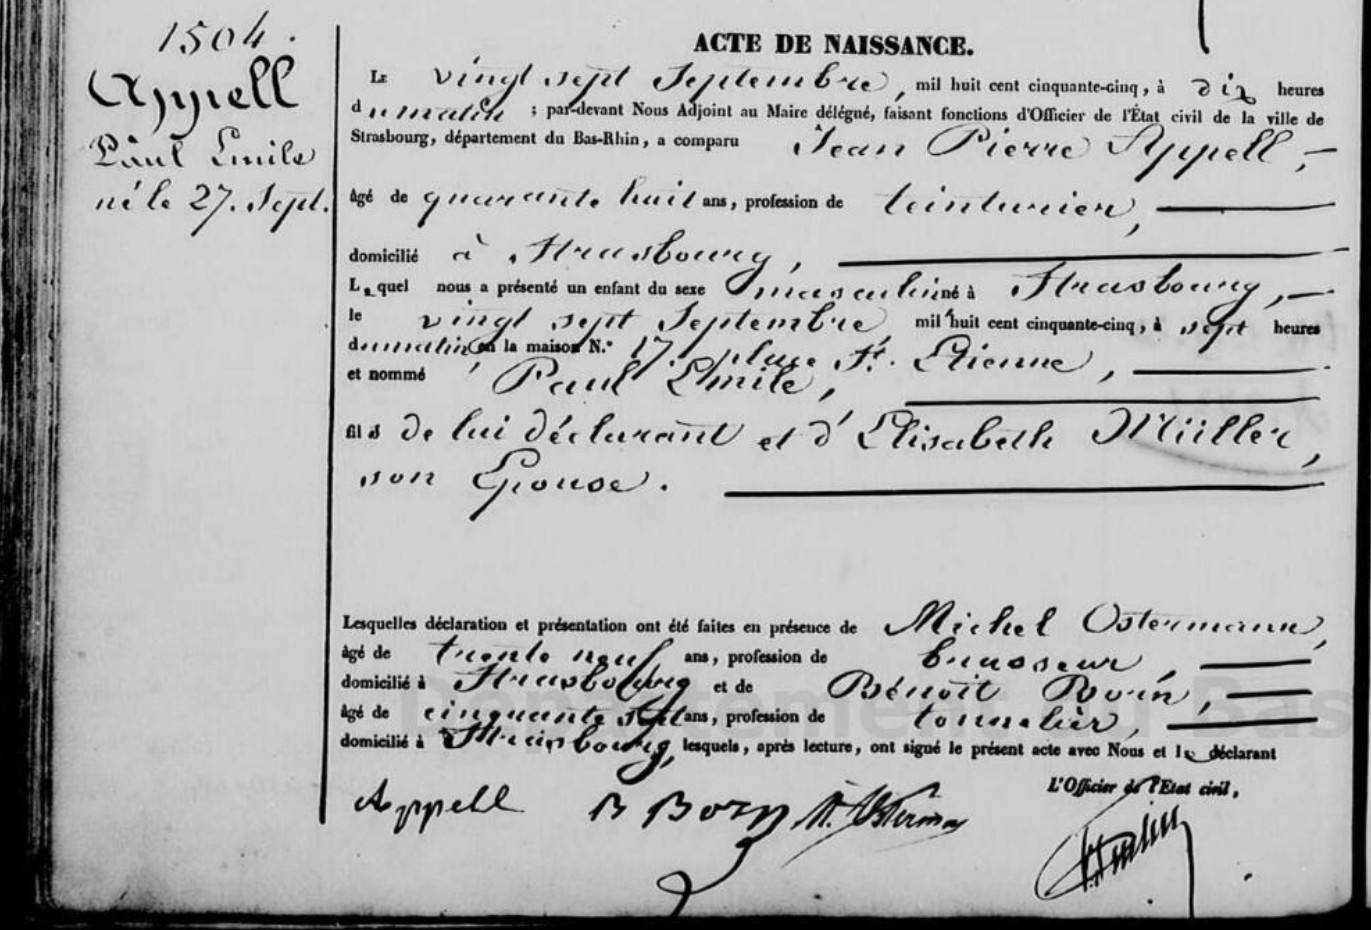 1504.
Appell
Paul Emile
né le 27. Sept.
ACTE DE NAISSANCE.
Le vingt sept Septembre, mil huit cent cinquante-cinq, à dix heures
du matin ; par-devant Nous Adjoint au Maire délégué, faisant fonctions d'Officier de l'État civil de la ville de
Strasbourg, département du Bas-Rhin, a comparu Jean Pierre Appell,
âgé de quarante huit ans, profession de teinturier,
domicilié à Strasbourg,
Lequel nous a présenté un enfant du sexe masculin né à Strasbourg,
le vingt sept Septembre mil huit cent cinquante-cinq, à sept heures
du matin, en la maison N.° 17. place St. Etienne,
et nommé Paul Emile,
fils de lui déclarant et d'Elisabeth Müller,
son Epouse.
Lesquelles déclaration et présentation ont été faites en présence de Michel Ostermann,
âgé de trente neuf ans, profession de brasseur,
domicilié à Strasbourg et de Bénoit Born,
âgé de cinquante sept ans, profession de tonnelier,
domicilié à Strasbourg, lesquels, après lecture, ont signé le présent acte avec Nous et le déclarant
L'Officier de l'Etat civil,
Appell B Born M. Ostermann
Département du Bas